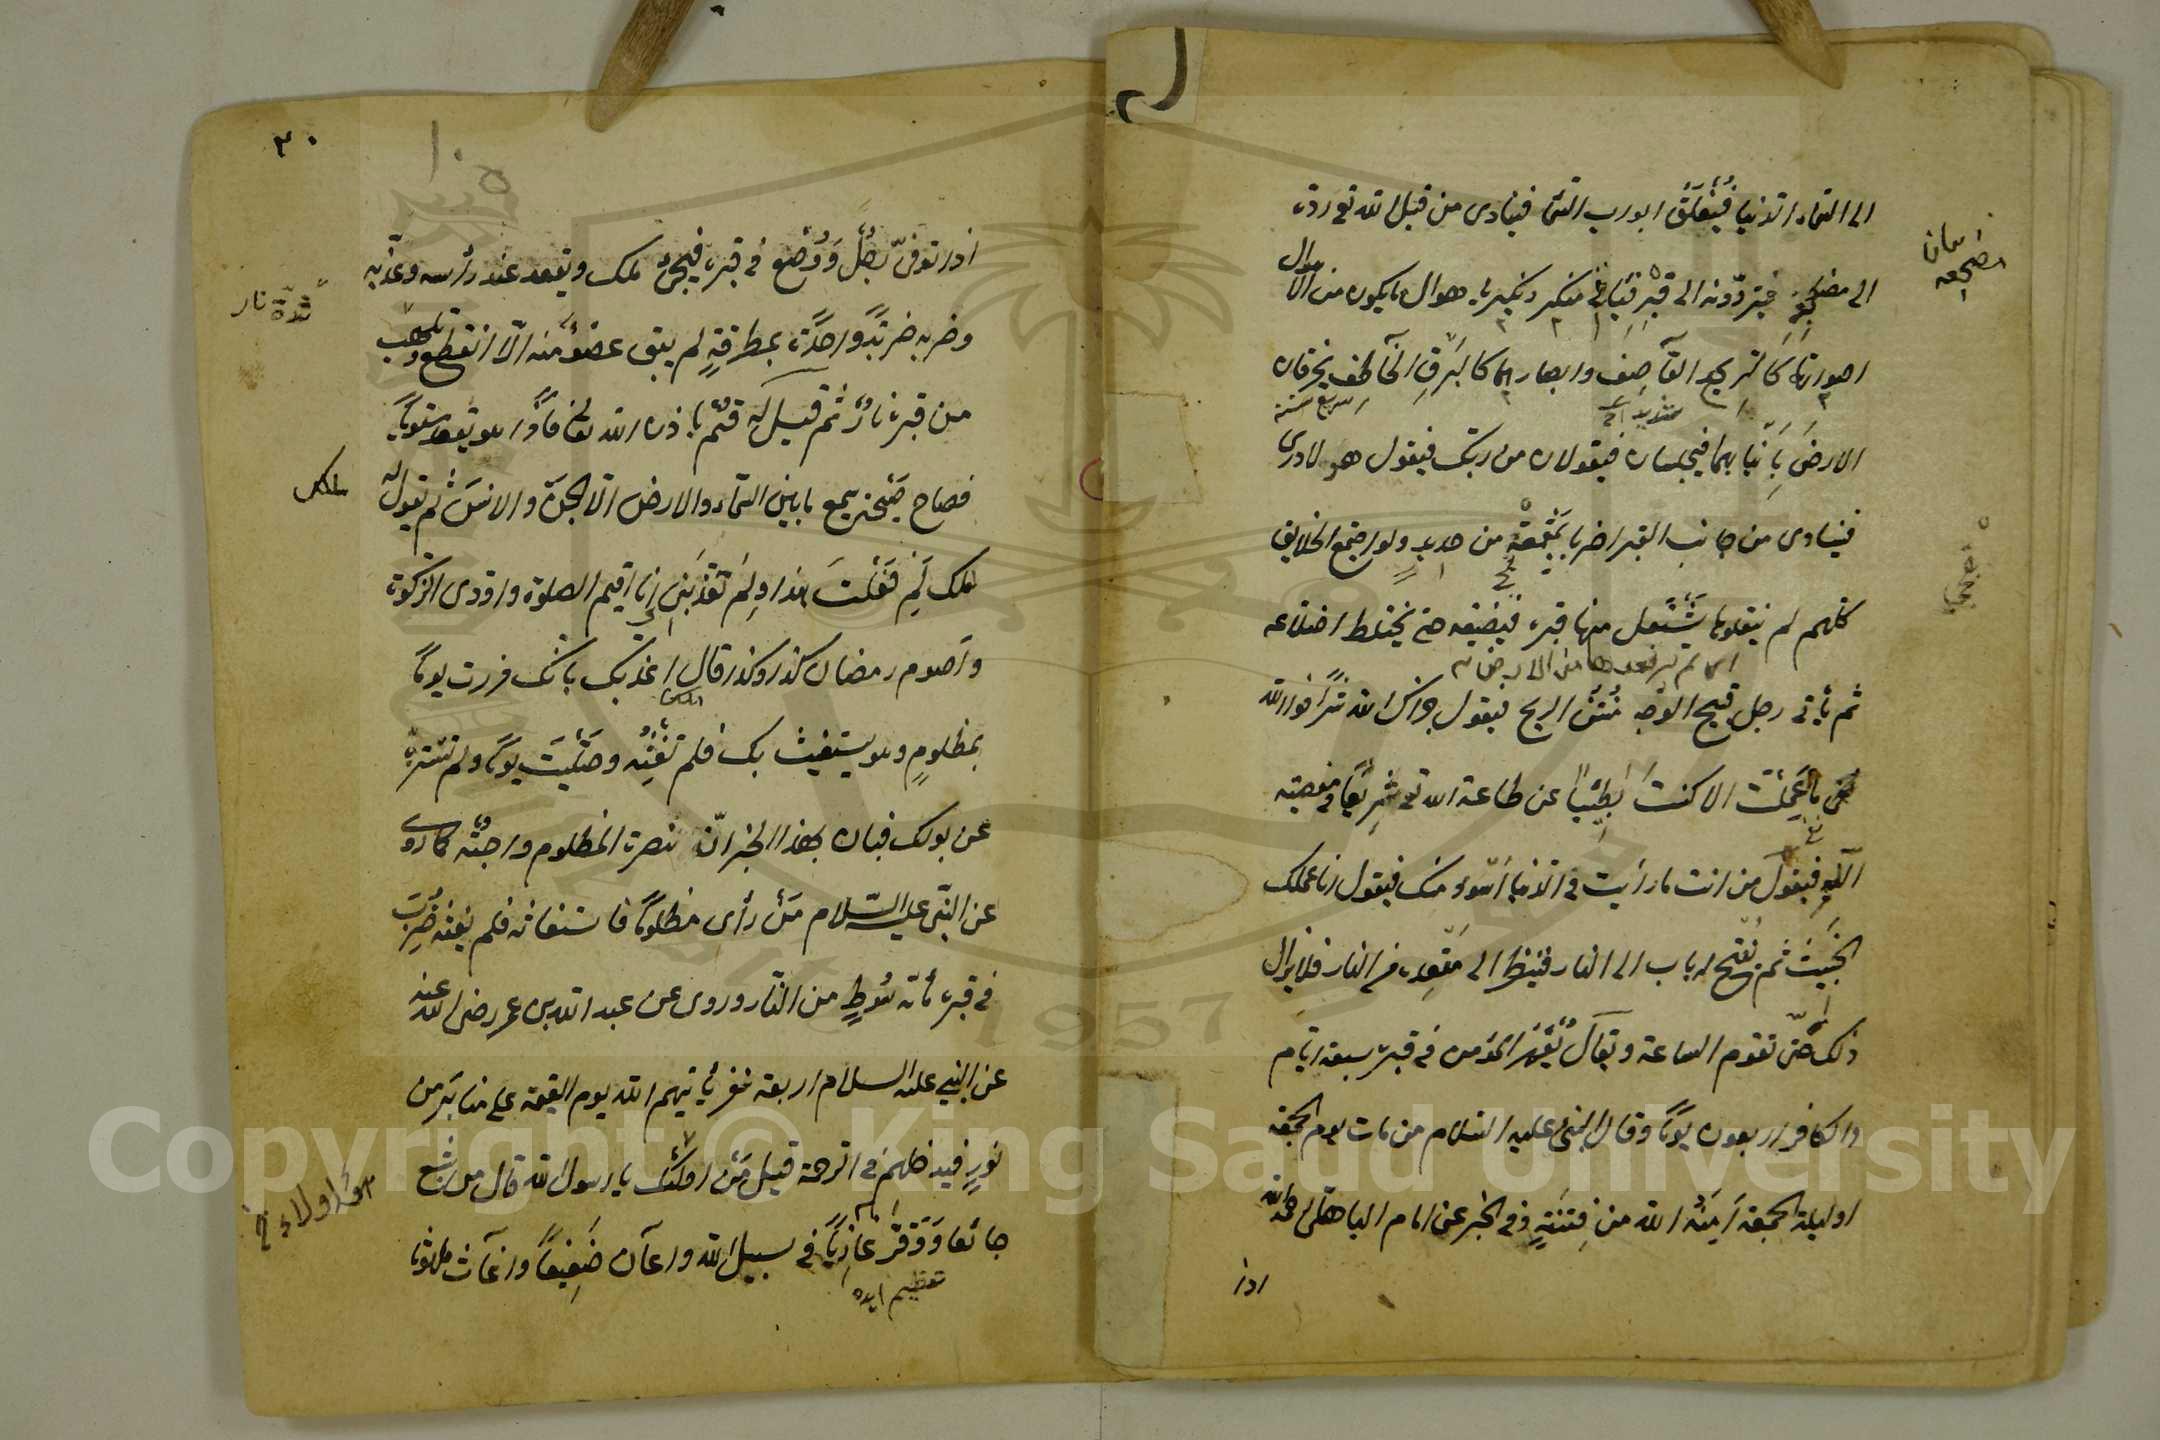 الى السماء الدنيا فيغلق ابواب السماء فينادى من قبل الله تع ردوه
الى مضجعه فيردونه الى قبره فياتى منكر ونكير باهوال ما يكون من الاهوال
اصواتهما كالرعد القاصف وابصارهما كالبرق الخاطف يخرقان
الارض بانيابهما فيجلسانه فيقولان من ربك فيقول هو لا ادرى
فينادى من جانب القبر اضربا بمقمعة من حديد ولو اجتمع الخلايق
كلهم لم ينقلوها يشتعل منها قبره فيضيقه حتى يختلط اضلاعه
ثم يأتى رجل قبيح الوجه منتن الريح فيقول جزاك الله شرا فوالله
ما علمت الا كنت بطيئا عن طاعة الله تع سريعا فى معصيته
فيقول من انت ما رأيت فى الدنيا اسوء منك فيقول انا عملك
الخبيث ثم يفتح له باب الى النار فينظر الى مقعده من النار فلا يزال
ذلك حتى تقوم الساعة ويقال المؤمن فى قبره سبعة ايام
والكافر اربعون يوما وقال النبى عليه السلام من مات يوم الجمعة
او ليلة الجمعة آمنه الله من فتنة وفى الخبر عن امام الباهلى رحمه الله
اذا
٣٠
اذا توفى رجل ووضع فى قبره فيجئ ملك ويقعد عند رأسه وعذبه
وضربه ضربة واحدة بمطرقة لم يبق عضو منه الا انقطع وتلهب
من قبره نار ثم قيل له قم باذن الله تع فاذا هو يقعد مستويا
فصاح صيحة يسمع ما بين السماء والارض الا الجن والانس ثم يقول له
لملك لم فعلت هذا ولم تعذبنى انا اقيم الصلوة واؤدى الزكوة
واصوم رمضان كذا وكذا قال اعذبك بانك مررت يوما
بمظلوم وهو يستغيث بك فلم تغثه وصليت يوما ولم تستنزه
عن بولك فبان بهذا الخبر ان نصرة المظلوم واجبة كما روى
عن النبى عليه السلام من رأى مظلوما فاستغاث به فلم يغثه ضرب
فى قبره مأته سوط من النار وروى عن عبد الله بن عمر رضى الله عنه
عن النبى عليه السلام اربعة نفر يأتيهم الله يوم القيمة على منابر من
نور فيدخلهم فى الرحمة قيل من اولئك يا رسول الله قال من اشبع
جائعا ووقر غازيا فى سبيل الله واعان ضعيفا واغاث ملهوفا
تعظيم ايده
هؤلاء خ
Copyright © King Saud University
1957